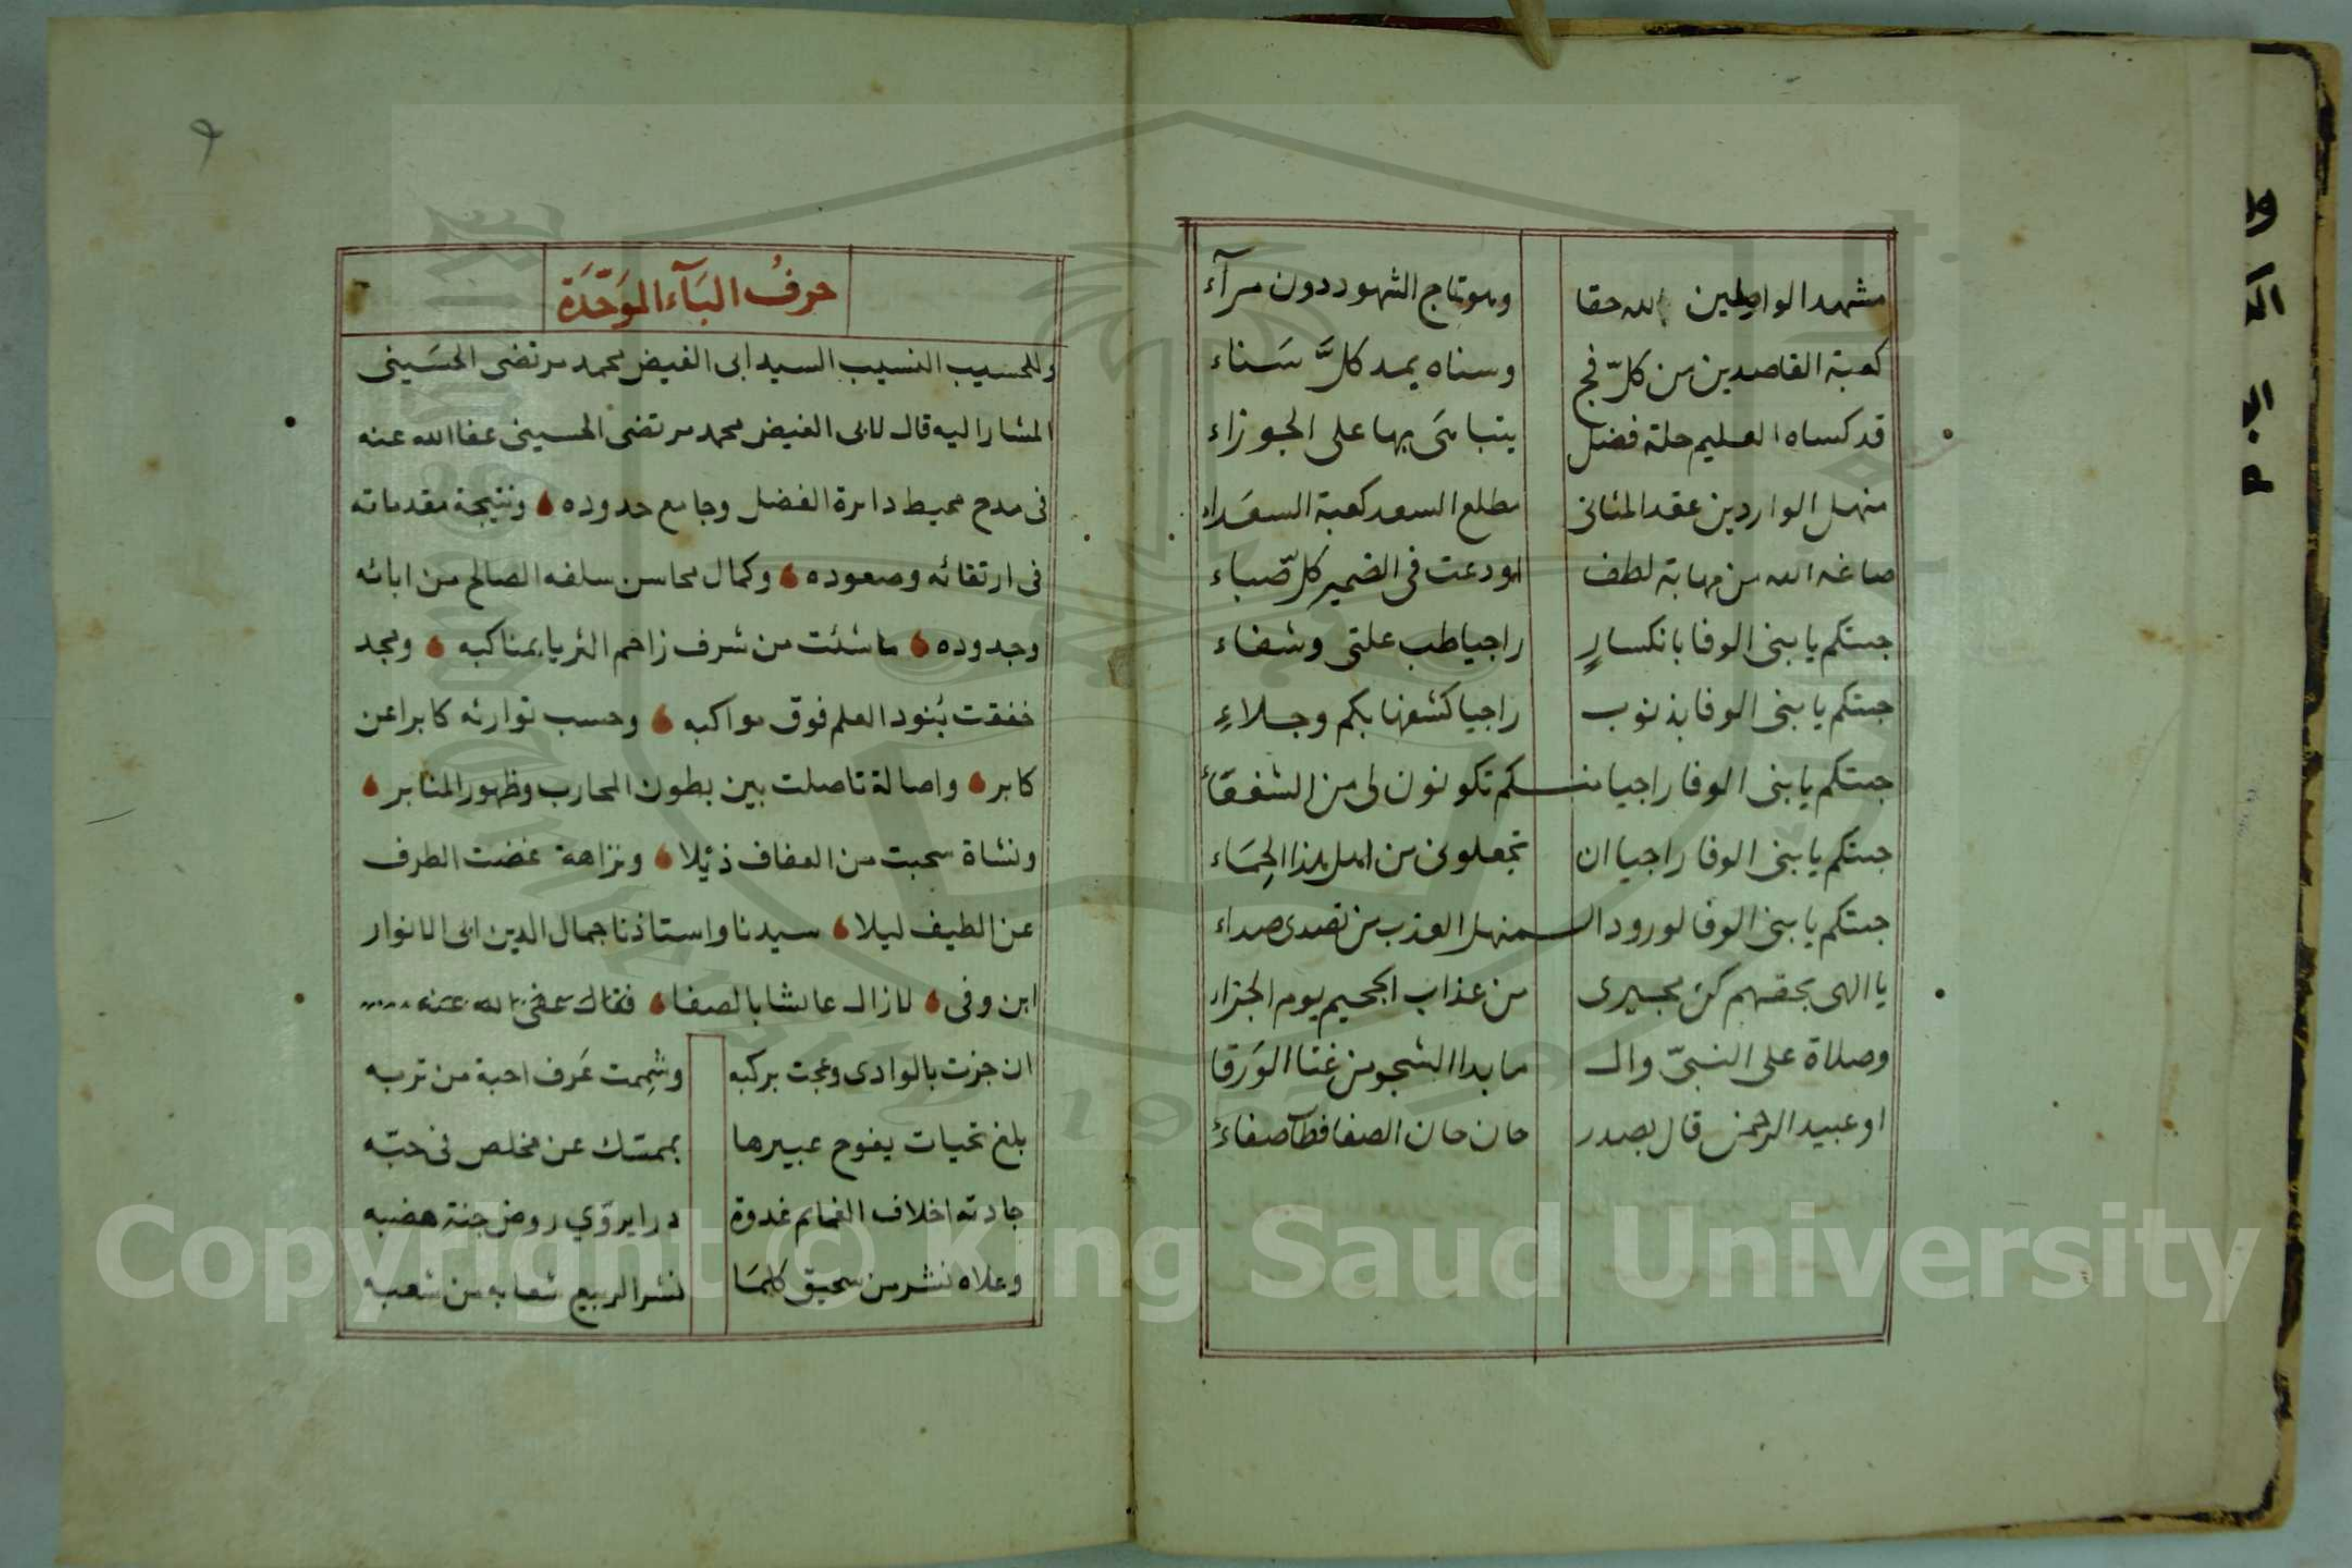 مشهد الواصلين لله حقا وهو تاج الشهود دون مرآء
كعبة القاصدين من كلّ فج وسناه يمد كلَّ سَناء
قد كساه العليم حلة فضل يتباهى بها على الجوزاء
منهل الواردين عقد المثانى مطلع السعد كعبة السعَداء
صاغه الله من مهابة لطف اودعت فى الضمير كلّ صباء
جئتكم يا بنى الوفا بانكسارٍ راجيا طب علتى وشفاء
جئتكم يا بنى الوفا بذنوب راجيا كشفها بكم وجلاءِ
جئتكم يا بنى الوفا راجيا منكم تكونون لى من الشفعَاء
جئتكم يا بنى الوفا راجيا ان تجعلونى من اهل هذا الحِمَاء
جئتكم يا بنى الوفا لورود المنهل العذب من تصدى صداء
يا الهى بحقهم كن مجيرى من عذاب الجحيم يوم الجزاء
وصلاة على النبىّ وال ما بدا الشجو من غنا الوَرَقا
او عبيد الرحمن قال بصدر حان حان الصفا فطآ صفاءُ
حرفُ البَآء الموَحّدَة
وللحسيب النسيب السيد ابى الفيض محمد مرتضى الحسَينى
المشار اليه قال لابى الفيض محمد مرتضى الحسينى عفا الله عنه
فى مدح محيط دايرة الفضل وجامع حدوده ونتيجة مقدماته
فى ارتقائه وصعوده وكمال محاسن سلفه الصالح من ابائه
وجدوده ما شئت من شرف زاحم الثريا بمناكبه ومجد
خفقت بُنود العلم فوق مواكبه وحسب توارثه كابرا عن
كابر واصالة تاصلت بين بطون المحارب وظهور المنابر
ونشاة سحبت من العفاف ذيْلا ونزاهة غضت الطرف
عن الطيف ليلا سيدنا واستاذنا جمال الدين ابى الانوار
ابن وفى لازال عائشا بالصفا فقال عفى الله عنه
ان جزت بالوادى وعجت بركبه وشِممت عَرف احبة من تربه
بلغ تحيات يفوح عبيرها بممتك عن مخلص فى حبّه
جادته اخلاف الغمايم غدوة دررا يروّي روض جنة هضبه
وعلاه نشر من سحيق كلمَا نشر الربيع شعابه من شعبه
Copyright © King Saud University